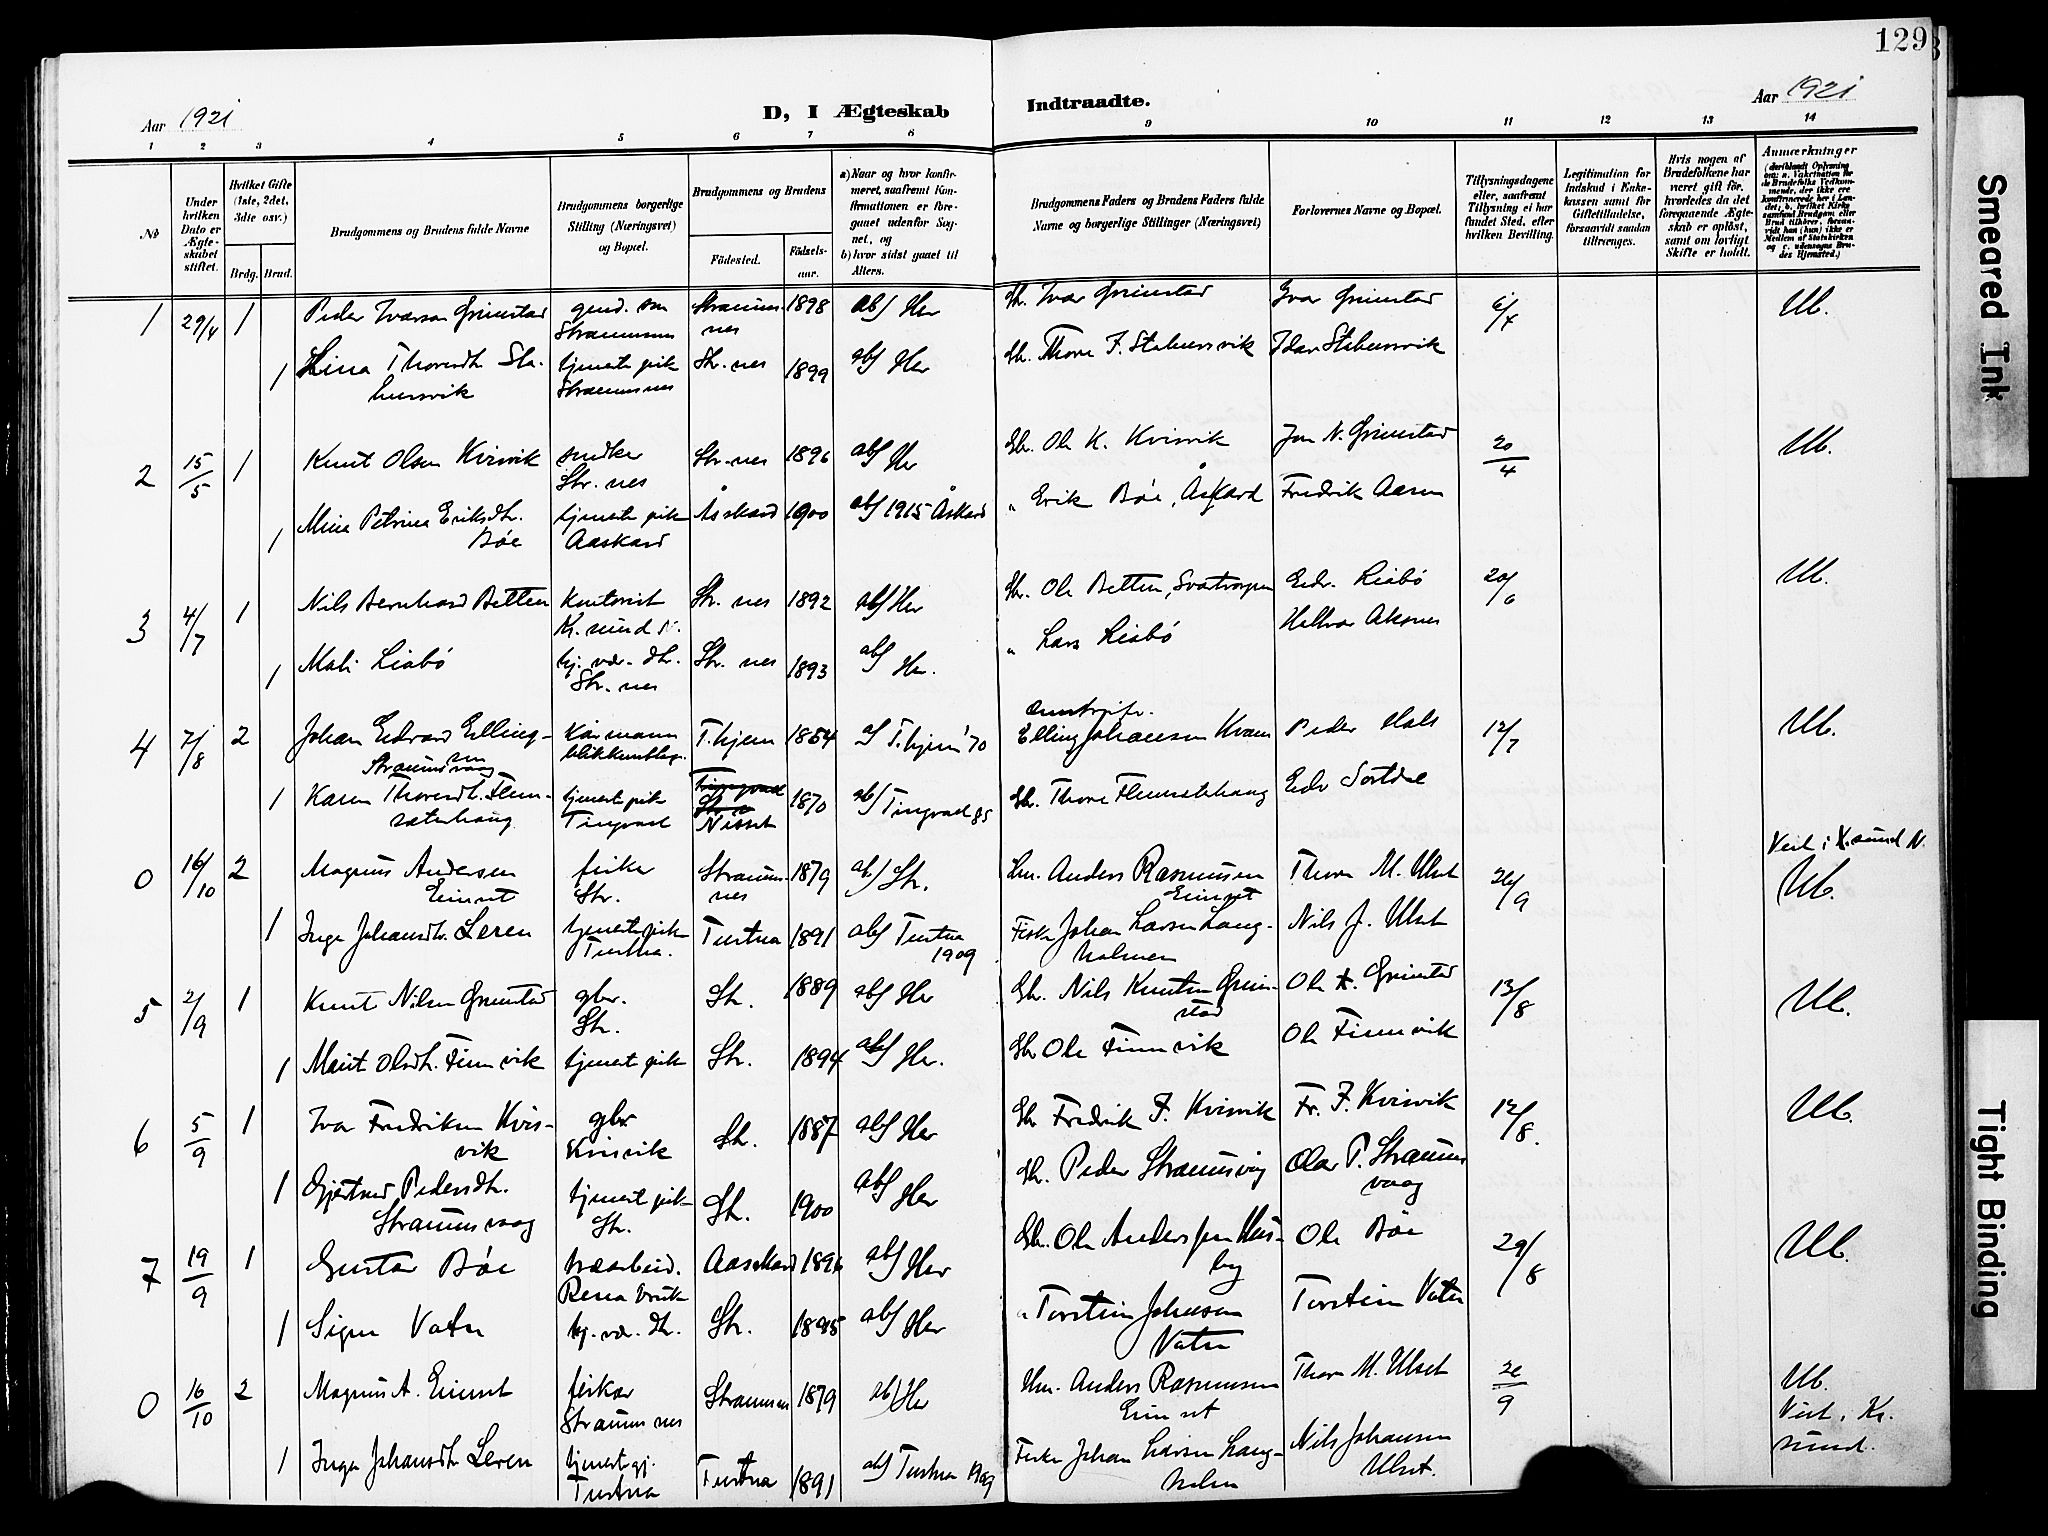 129
Aar 1921
D, I Ægteskab
Indtraadte.
Aar 1921
1 2 3 4 5 6 7 8 9 10 11 12 13 14
No
Under hvilken Dato er Ægteskabet stiftet.
Hvilket Gifte (1ste, 2det, 3die osv.)
Brdg. Brud.
Brudgommens og Brudens fulde Navne
Brudgommens borgerlige Stilling (Næringsvei) og Bopæl.
Brudgommens og Brudens
Födested.
Födsels-aar.
a) Naar og hvor konfirmeret, saafremt Konfirmationen er foregaaet udenfor Sognet, og
b) hvor sidst gaaet til Alters.
Brudgommens Faders og Brudens Faders fulde Navne og borgerlige Stillinger (Næringsvei)
Forlovernes Navne og Bopæl.
Tillysningsdagene eller, saafremt Tillysning ei har fundet Sted, efter hvilken Bevilling.
Legitimation for Indskud i Enkekassen samt for Giftetilladelse, forsaavidt saadan tiltrænges.
Hvis nogen af Brudefolkene har været gift för, hvorledes da det foregaaende Ægteskab er oplöst, samt om lovligt Skifte er holdt.
Anmærkninger
1 29/4 1 Peder Ivarson Grimstad gmd. søn Straumsnes Straumsnes 1898 ab) Her Gbr. Ivar Grimstad Ivar Grimstad 6/4 Ub.
1 Lina Thoresdtr. Stensvik tjeneste pike Straumsnes Str.nes 1899 ab) Her Gbr. Thore J.
2 15/5 1 Knut Olsen Kvisvik snedker Str. nes Str.nes 1896 ab) Her Gbr. Ole K. Kvisvik Jon N. Grimstad 20/4 Ub.
1 Mina Petrina Eriksdtr. Bøe tjeneste pike Aaskard Åsskard 1900 ab) 1915 Åskard " Erik Bøe, Åskard Fredrik Aasen
3 4/7 1 Nils Bernhard Betten Kontorist Kr.sund N. Str. nes 1892 ab) Her Gbr. Ole Betten, Edv. Liabø 20/6 Ub.
1 Mali Liabø hj. vær. dtr. Str. nes Str. nes 1893 ab) Her. " Lars Liabø
4 7/8 2 Johan Edvard Ellingsen Straumsvaag T.hjem 1854 a) T.hjem '70 Elling Johansen Kvam Peder Hals 12/7 Ub.
1 Karen Thoresdtr. Flemsæterhaug tjeneste pike Tingvoll Nesset 1870 ab) Tingvoll 85 Gbr. Thore Edv Sortdal
Viet i K.sund N.
0 16/10 2 Magnus Andersen Einset fisker Str. Straumsnes 1879 ab) Str. Hm. Anders Rasmussen Einset Thore M. Ulset 26/9 Ub.
1 Inga Johansdtr. Leren tjeneste pike Tustna. Tustna 1891 ab) Tustna 1909 Fisker Johan Larsen Langholmen Nils J. Ulset
5 2/9 1 Knut Nilsen Grimstad gbr. Str. Str. 1889 ab) Her Gbr. Nils Knutsen Grimstad Ole K. Grimstad 13/8 Ub.
1 Marit Olsdtr. Finnsvik tjenest pike Str. 1894 ab) Her. Gbr Ole Finnsvik Ole Finnsvik
6 5/9 1 Ivar Fredriksen Kvisvik gbr Kvisvik Str. 1887 ab) Her Gbr Fredrik F. Kvisvik Fr. F. Kvisvik 12/8. Ub.
1 Gjertrud Pedersdtr. Straumsvaag tjenest pike Str. Str. 1900 ab) Her Gbr. Peder Straumsvåg Olav P. Straumsvaag
7 19/9 1 Gustav Bøe Rena Bruk Aasskard 1896 ab) Her Gbr. Ole Anderssen Husby Ole Bøe 29/8 Ub.
1 Signe Vatn hj. vær. dtr. Str. 1895 ab) Her " Torstein Johnsen Vatn Torstein Vatn
0 16/10 2 Magnus A. Einset fisker Straumsnes Straumsnes 1879 ab) Her Hm. Anders Rasmussen Einset Thore M. Ulset 26/9 Ub. Viet i Kr.sund.
1 Inga Johansdtr Leren tjenest gj. Tustna Tustna 1891 ab) Tustna 1909 Fisker Johan Larsen Langholmen Nils Johansen Ulset.
Smeared Ink
Tight Binding